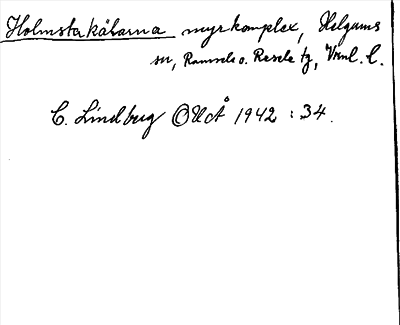 Holmstakälarna myrkomplex, Helgums
sn, Ramsele o. Resele tg, Vrnl. l.
C. Lindberg OUoÅ 1942 : 34.